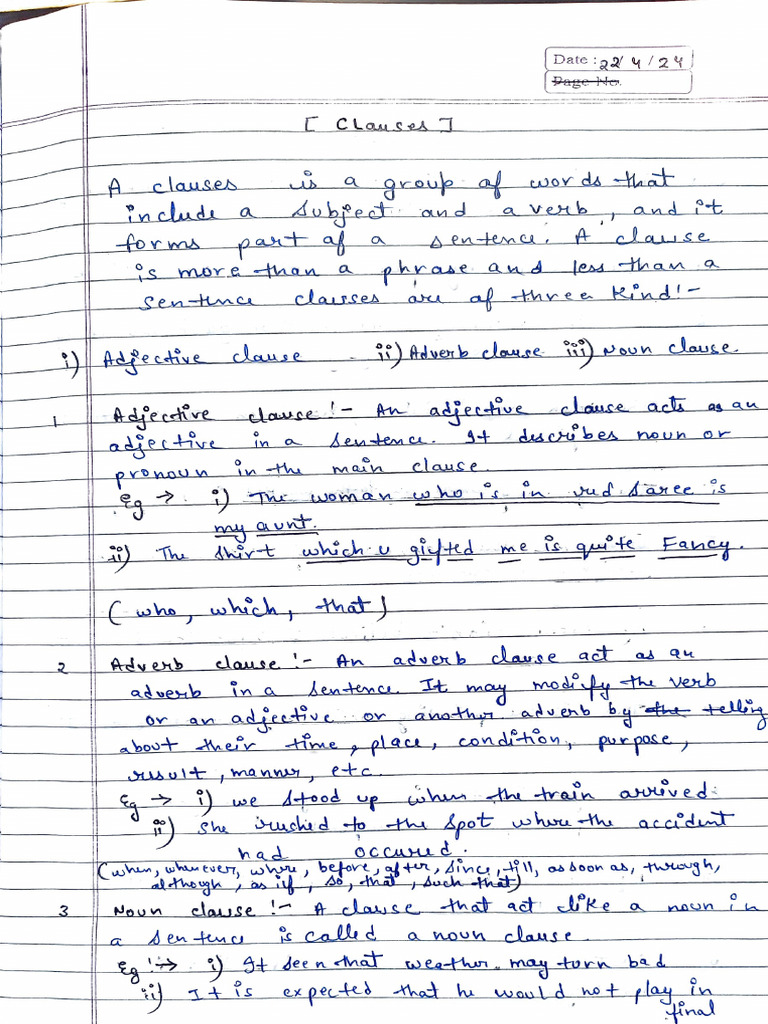 Date : 22/4/24
Page No.
[ Clauses ]
A clauses is a group of words that
include a subject and a verb, and it
forms part of a sentence. A clause
is more than a phrase and less than a
sentence clauses are of three kind!-
i) Adjective clause ii) Adverb clause iii) Noun clause.
1 Adjective clause!- An adjective clause acts as an
adjective in a sentence. It describes noun or
pronoun in the main clause.
Eg → i) The woman who is in red saree is
my aunt.
ii) The shirt which u gifted me is quite Fancy.
(who, which, that)
2 Adverb clause!- An adverb clause act as an
adverb in a sentence. It may modify the verb
or an adjective or another adverb by the telling
about their time, place, condition, purpose,
result, manner, etc.
Eg → i) we stood up when the train arrived.
ii) She rushed to the spot where the accident
had occured.
(when, whenever, where, before, after, since, till, as soon as, through,
although, as if, so, that, such that)
3 Noun clause!- A clause that act like a noun in
a sentence is called a noun clause.
Eg!→ i) It seen that weather may turn bad
ii) It is expected that he would not play in
final